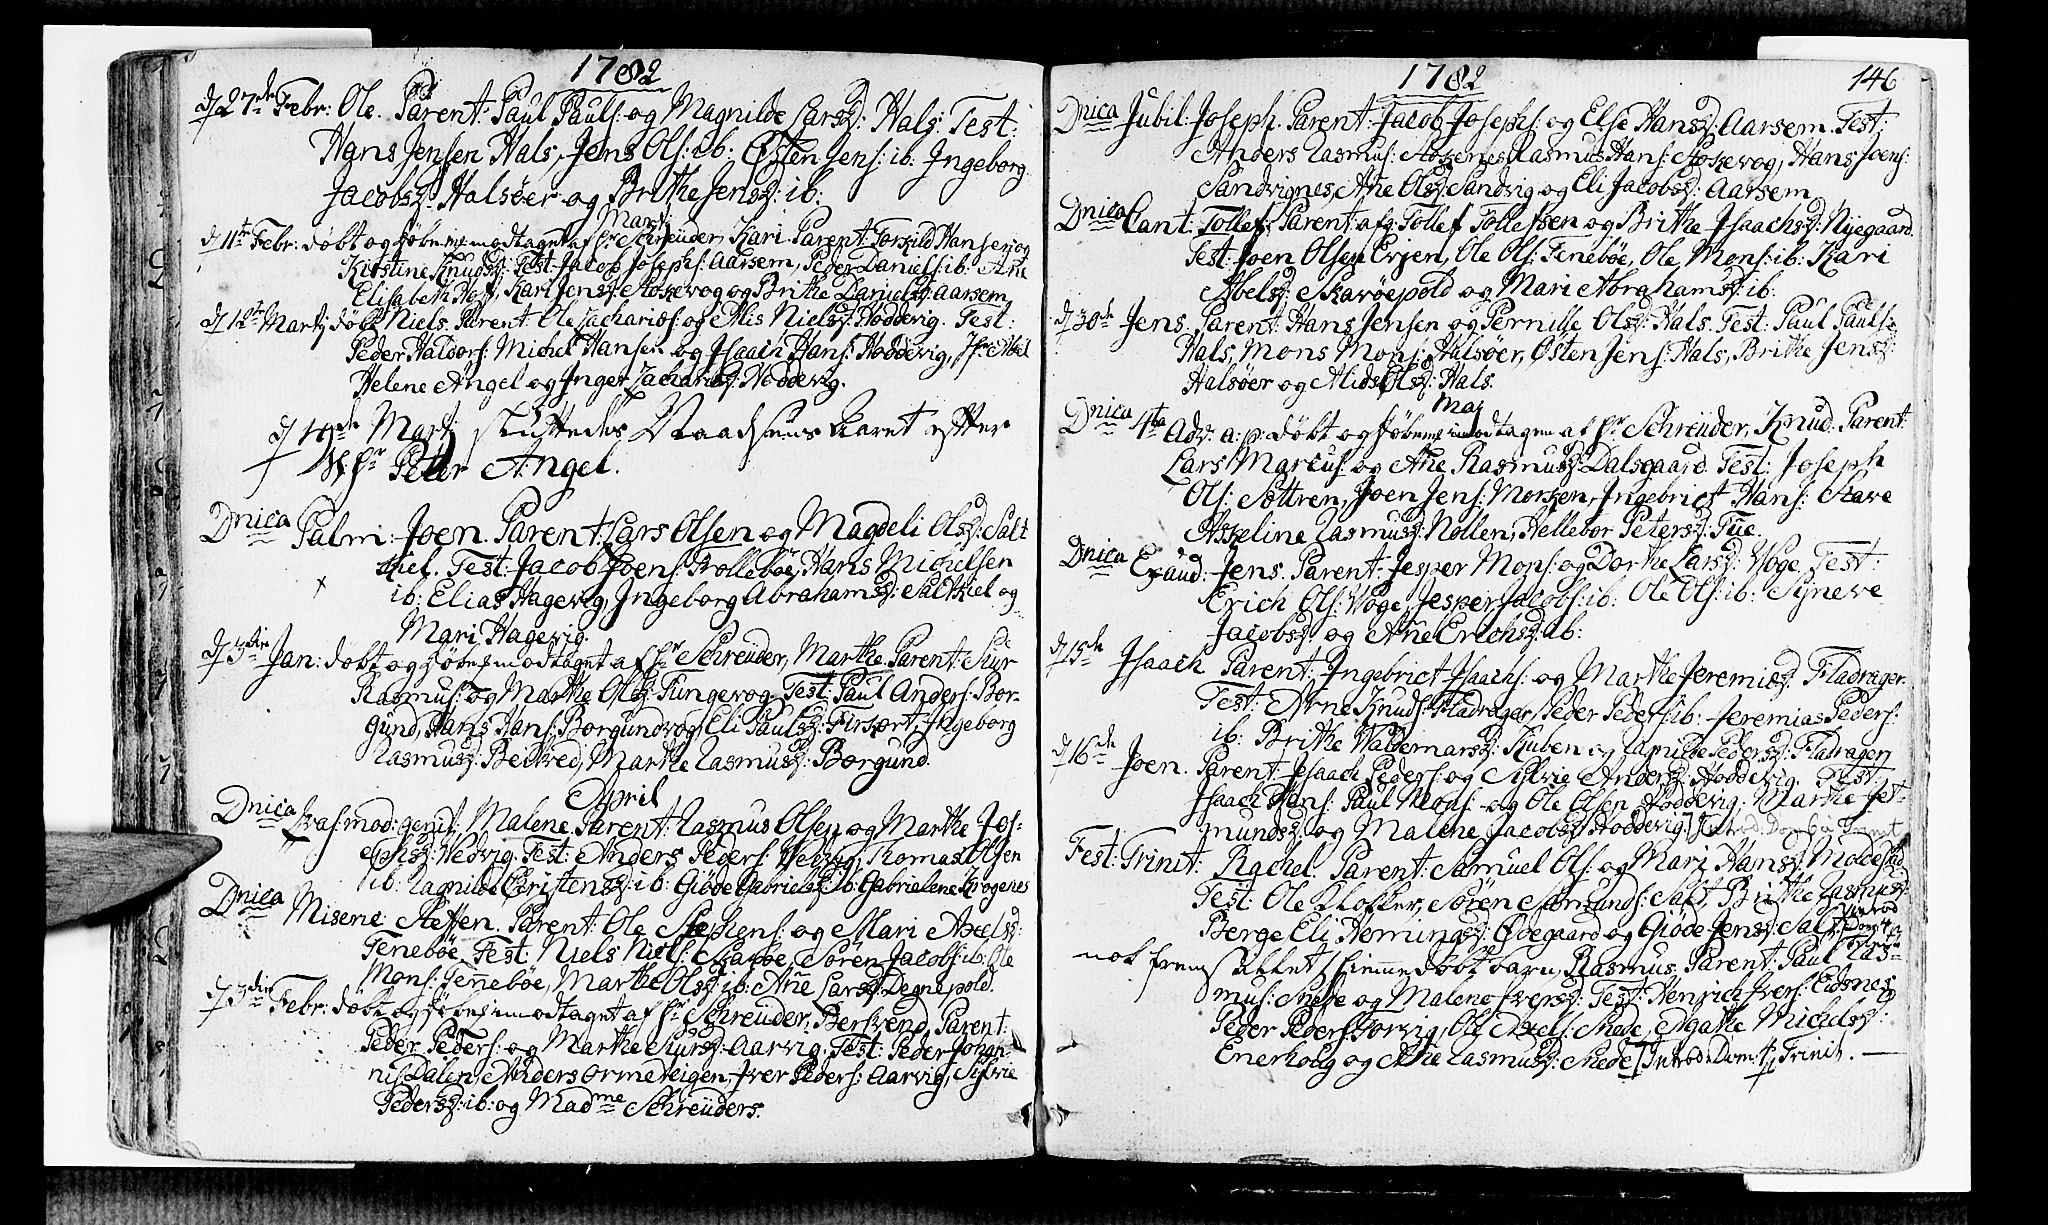 1782
d 27de Febr: Ole. Parent: Paul Pauls: og Magnilde Larsd: Hals. Test:
Hans Jensen Hals, Jens Ols: ib: Østen Jens: ib: Ingeborg
Jacobsd: Halsøer og Brithe Jensd: ib:
Martj
d 11te Febr: døbt og hiemmedøbt modtaget af Hr Schreuder, Kari. Parent: Torkild Hansen og
Kirstine Knudsd: Test: Jacob Josephs: Aarsem, Peder Daniels: ib: Ane
Elisabeth Hof, Kari Jensd: Stokevog og Brithe Danielsd: Aarsem.
d 12te Martj døbt Niels. Parent: Ole Zacharias: og Alis Nielsd: Hoddevig. Test:
Peder Haldors: Michel Hansen og Isaach Hans: Hoddevig, Jfr Abel
Helene Angel og Inger Zachariasd: Hoddevig.
d 19de Martj sluttedes Naadsens Aaret efter
S. Hr Peter Angel.
Dnica Palm: Joen. Parent: Lars Olsen og Magdeli Olsd: Salt
kiel. Test: Jacob Joens: Trollebøe, Hans Michelsen
ib: Elias Hagevig, Ingeborg Abrahamsd: Saltkiel og
Mari Hagevig.
d 3die Jan: døbt og modtaget af Hr Schreuder, Marthe. Parent: Siur
Rasmus: og Marthe Olsd: Tungevog. Test: Paul Anders: Bor-
gund, Hans Hans: Borgundvog, Eli Paulsd: Tirsært, Ingeborg
Rasmusd: Beitved, Marthe Rasmusd: Borgund.
April
Dnica Qvasimod: genit: Malene. Parent: Rasmus Olsen og Marthe Jos-
ephsd: Hedvig. Test: Anders Peders: Hedvig, Thomas Olsen
ib: Ragnilde Christensd: ib: Giøde Gabrielsd: ib: Gabrielene Krogenes
Dnica Miserie: Steffen. Parent: Ole Stephens: og Mari Axelsd:
Tenebøe. Test: Niels Niels: Skarbøe, Søren Jacobs: ib: Ole
Mons: Tennebøe, Marthe Olsd: ib: Ane Larsd: Degnepold.
d 3die Febr: døbt og modtaget af Hr Schreuder, Bersvend. Parent:
Peder Peders: og Marthe Siursd: Aarvig. Test: Peder Johan-
nis: Dalen, Anders Ormeteigen, Iver Peders: Aarvig, Sylvie
Pedersd: ib: og Madme Schreuders.
1782
146
Dnica Jubil: Joseph. Parent: Jacob Josephs: og Else Hansd: Aarsem. Test:
Anders Rasmus: Rasmus Hans: Stokevog, Hans Joens:
Sandvignes, Ane Olsd: Sandvig og Eli Jacobsd: Aarsem
Dnica Cant: Tollef: Parent: afg: Tollef Tollefsen og Brithe Isaachsd: Nyegaard.
Test: Joen Olsen Erjen, Ole Ols: Tenebøe, Ole Mons: ib: Kari
Abelsd: Skarøepold og Mari Abrahamsd: ib:
d 30te Jens. Parent: Hans Jensen og Pernille Olsd: Hals. Test: Paul Pauls:
Hals, Mons Mons: Halsøer, Østen Jens: Hals, Brithe Jensd:
Halsøer og Alids Olsd: Hals.
Maj
Dnica 4ta Adv: a: p: døbt og modtagen af Hr Schreuder, Knud. Parent:
Lars Marcus: og Ane Rasmusd: Dalsgaard. Test: Joseph
Ols: Søttren, Joen Jens: Morken, Ingebrict Hans: Stave
Asseline Rasmusd: Nollen, Hellebor Petersd: Tue.
Dnica Exaud: Jens. Parent: Jesper Mons: og Dorthe Larsd: Woge. Test:
Erich Ols: Woge, Jesper Jacobs: ib: Ole Ols: ib: Synneve
Jacobsd: og Ane Erichsd: ib:
d 15de Isaach Parent: Ingebrict Isaachs: og Marthe Jeremiæd: Fladrager.
Test: Arne Knuds: Fladrager, Peder Peders: ib: Jeremias Peders:
ib: Brithe Waldemarsd: Kuben og Pedersd: Fladragen
d 16de Joen. Parent: Isaach Peders: og Sylvie Andersd: Hoddevig. Test:
Isaach Hans: Paul Mons: og Ole Olsen Hoddevig, Marthe Jet-
mundsd: og Malene Jacobsd: Hoddevig. Introd: Dom: 6 a Trinit
Fest: Trinit: Rachel. Parent: Samuel Ols: og Mari Hansd: Moldestad
Test: Ole Klokker, Søren Asmunds: Salt, Brithe Rasmusd:
Berge Eli Hemingsd: Ødegaard og Giøde Jensd: Salt. Introd: Dom: a Trinit
nok fremstillet hiemmedøbt barn, Rasmus. Parent: Paul Ras-
mus: Snese og Malene Iversd: Test: Henrich Ivers: Eidsnes
Peder Peders: Torvig, Ole Axels: Skede, Agathe Michelsd:
Enerhoug og Ane Rasmusd: Skede / Introd: Dom: 4 p Trinit. —